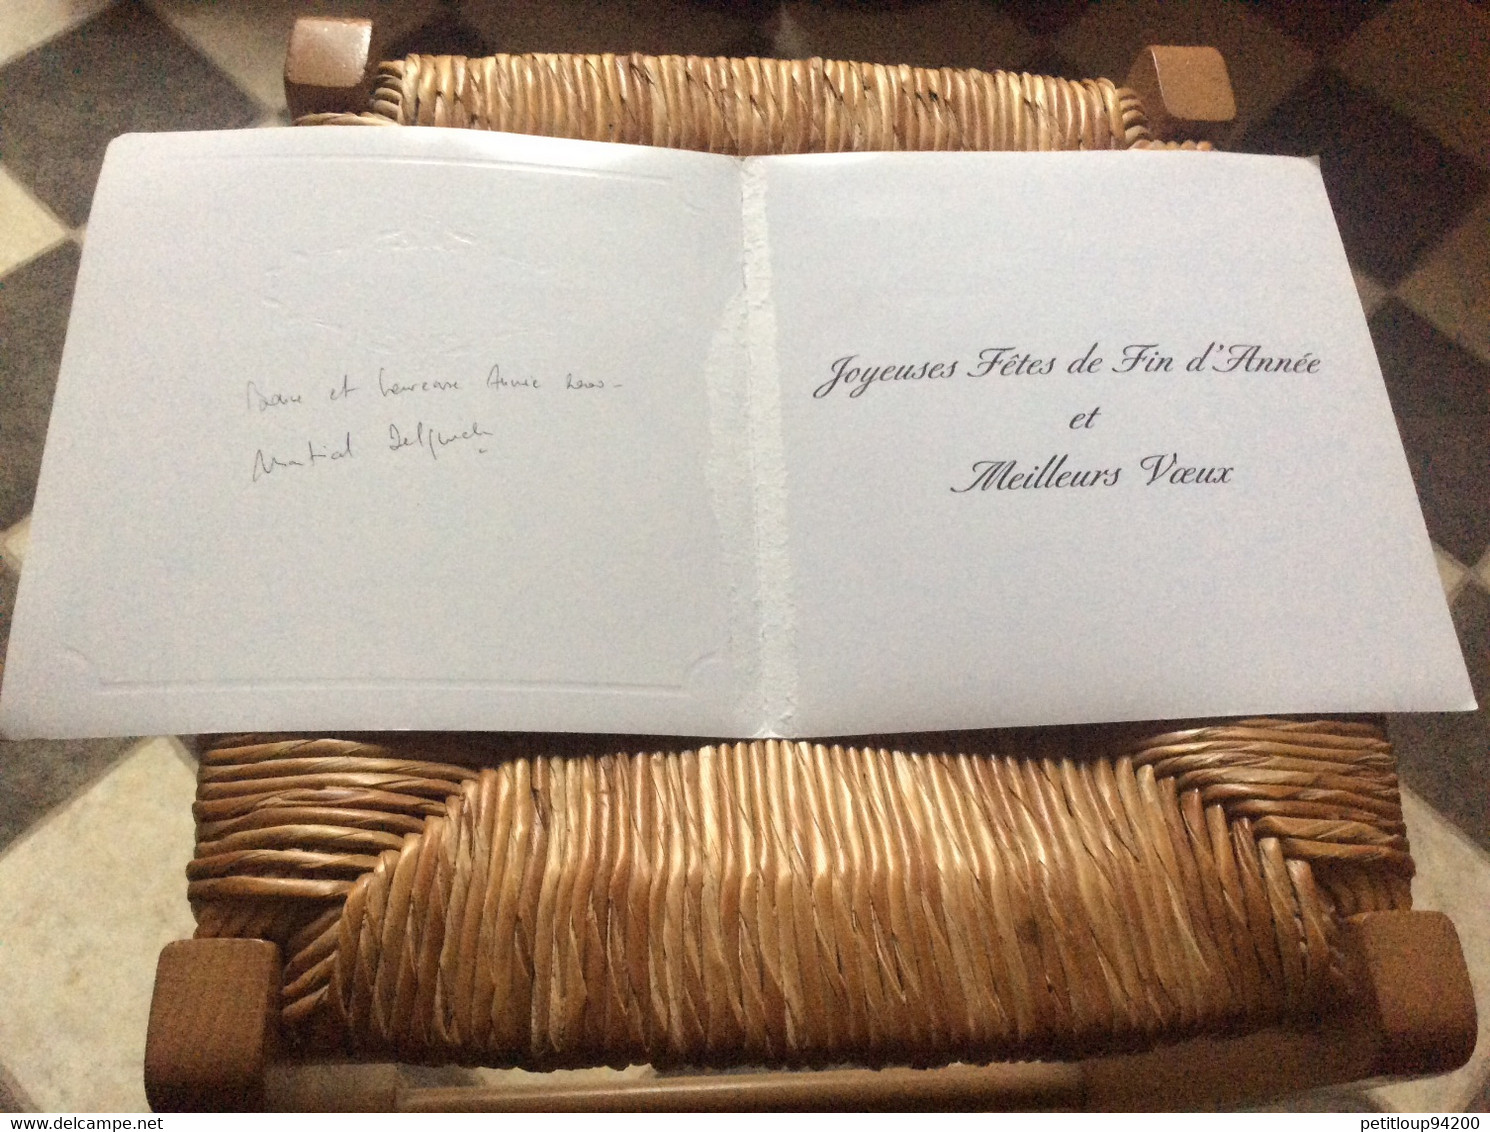 Bonne et heureuse Année 2000 -
Martial
Joyeuses Fêtes de Fin d'Année
et
Meilleurs Vœux
www.delcampe.net
petitloup94200